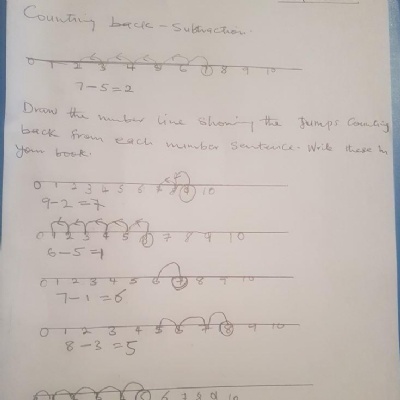 Counting back - Subtraction.
0 1 2 3 4 5 6 7 8 9 10
7-5=2
Draw the number line showing the Jumps Counting
back from each number sentence. Write these in
your book.
0 1 2 3 4 5 6 7 8 9 10
9-2=7
0 1 2 3 4 5 6 7 8 9 10
6-5=1
0 1 2 3 4 5 6 7 8 9 10
7-1=6
0 1 2 3 4 5 6 7 8 9 10
8-3=5
6 7 8 9 10